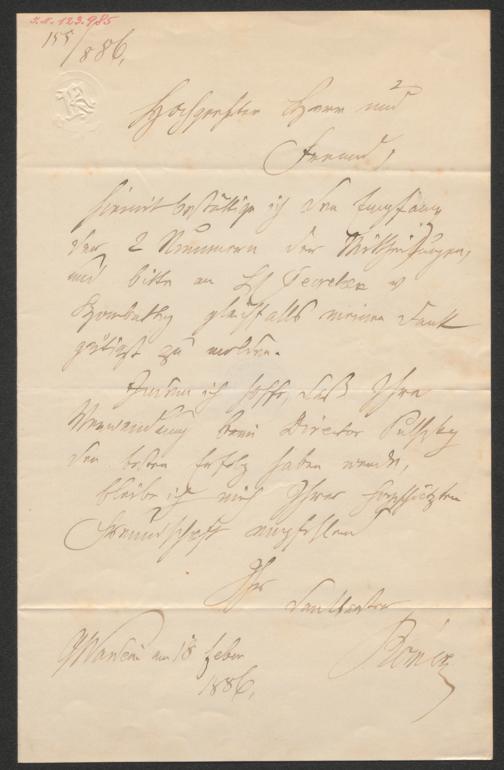 I.N. 123.985
155/886.
Hochgeehrter Herr und
Freund,
hiemit bestättige ich den Empfang
der 2 Nummern der Mittheilungen,
und bitte an H Secretär v
Szombathy gleichfalls meinen Dank
gütigst zu melden.
Indem ich hoffe, daß Ihre
Verwendung beim Director Pulszky
den besten Erfolg haben werde,
bleibe ich mich Ihrer
Freundschaft empfehlend
Ihr
dankbarer
am 18 Feber
1886.